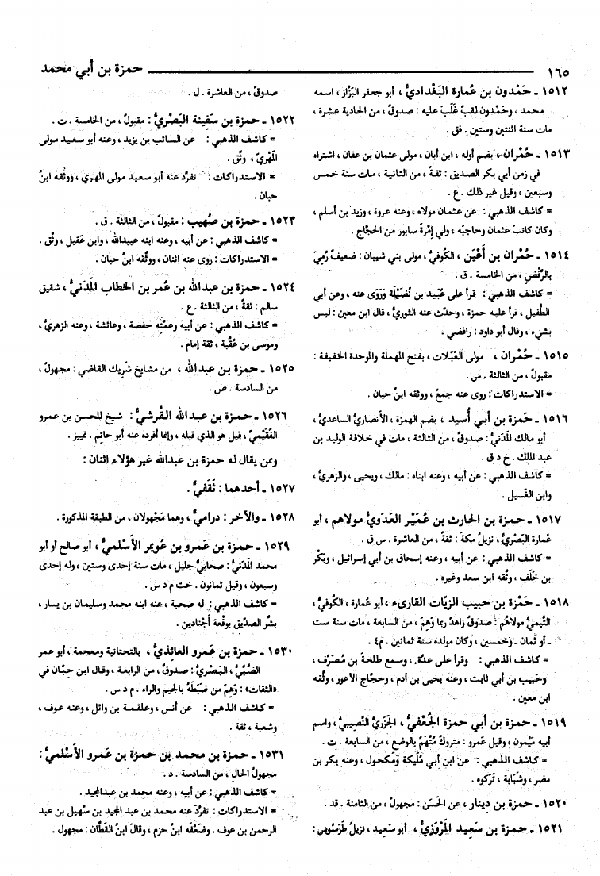 ١٦٥
حمزة بن أبي محمد
١٥١٢ ـ حَمْدُون بن عُمارة البَغْداديُّ ، أبو جعفر البَزَّاز ، اسمه
محمد ، وحَمْدون لقبٌ غَلَبَ عليه : صدوقٌ ، من الحادية عشرة ،
مات سنة اثنتين وستين . فق .
١٥١٣ ـ حُمْران ، بضم أوله ، ابن أبان ، مولى عثمان بن عفان ، اشتراه
في زمن أبي بكر الصديق : ثقةٌ ، من الثانية ، مات سنة خمس
وسبعين ، وقيل غير ذلك . ع .
= كاشف الذهبي : عن عثمان مولاه ، وعنه عروة ، وزيد بن أسلم ،
وكان كاتبَ عثمان وحاجبه ، ولي إمْرةَ سابور من الحجّاج .
١٥١٤ ـ حُمْران بن أَعْيَن ، الكُوفيُّ ، مولى بني شيبان : ضعيفٌ رُمِيَ
بالرَّفْض ، من الخامسة . ق .
= كاشف الذهبي : قرأ على عُبَيد بن نُضَيْلة وروَى عنه ، وعن أبي
الطُّفَيل ، قرأ عليه حمزة ، وحدّث عنه الثوريُّ ، قال ابن معين : ليس
بشيء ، وقال أبو داود : رافضي .
١٥١٥ ـ حُمْران ، مولى العَبَلات ، بفتح المهملة والموحدة الخفيفة :
مقبولٌ ، من الثالثة . س .
= الاستدراكات : روى عنه جمعٌ ، ووثقه ابنُ حبان .
١٥١٦ ـ حَمزة بن أبي أُسيد ، بضم الهمزة ، الأنصاريُّ الساعديُّ ،
أبو مالك المَدَنيُّ : صدوقٌ ، من الثالثة ، مات في خلافة الوليد بن
عبد الملك . خ د ق .
= كاشف الذهبي : عن أبيه ، وعنه ابناه : مالك ، ويحيى ، والزهريُّ ،
وابن الغَسيل .
١٥١٧ ـ حمزة بن الحارث بن عُمَيْر العَدَويُّ مولاهم ، أبو
عُمارة البَصْريُّ ، نزيلُ مكةَ : ثقةٌ ، من العاشرة . س ق .
= كاشف الذهبي : عن أبيه ، وعنه إسحاق بن أبي إسرائيل ، وبَكْر
بن خَلَف ، وثقه ابن سعد وغيره .
١٥١٨ ـ حَمْزة بن حبيب الزيَّات القارىء ، أبو عُمارة ، الكُوفيُّ ،
التَّيْميُّ مولاهم : صدوقٌ زاهدٌ ربما وَهِمَ ، من السابعة ، مات سنة ست
ـ أو ثمان ـ وخمسين ، وكان مولده سنة ثمانين . م٤ .
= كاشف الذهبي : وقرأ على عدّة ، وسمع طلحة بن مُصَرّف ،
وحَبيب بن أبي ثابت ، وعنه يحيى بن آدم ، وحجّاج الأعور ، وثّقه
ابن معين .
١٥١٩ ـ حمزة بن أبي حمزة الجُعْفيُّ ، الجَزَريُّ النَّصِيبيُّ ، واسم
أبيه مَيْمون ، وقيل عمرو : متروكٌ مُتَّهَمٌ بالوضع ، من السابعة . ت .
= كاشف الذهبي : عن ابن أبي مُليكة ومكحول ، وعنه بكر بن
مضر ، وشبَابة ، تركوه .
١٥٢٠ ـ حمزة بن دينار ، عن الحَسَن : مجهولٌ ، من الثامنة . قد .
١٥٢١ ـ حمزة بن سَعيد المَرْوَزيُّ ، أبو سعيد ، نزيلُ طَرَسُوس :
صدوقٌ ، من العاشرة . ل .
١٥٢٢ ـ حمزة بن سَفينة البَصْريُّ : مقبولٌ ، من الخامسة . ت .
= كاشف الذهبي : عن السائب بن يزيد ، وعنه أبو سعيد مولى
المَهْريِّ ، وثّق .
= الاستدراكات : تفرَّد عنه أبو سعيد مولى المهري ، ووثّقه ابنُ
حبان .
١٥٢٣ ـ حمزة بن صُهَيب : مقبولٌ ، من الثالثة . ق .
= كاشف الذهبي : عن أبيه ، وعنه ابنه عبيدالله ، وابن عَقيل ، وثّق .
= الاستدراكات : روى عنه اثنان ، ووثَّقه ابنُ حبان .
١٥٢٤ ـ حمزة بن عبدالله بن عُمر بن الخطاب المَدَنيُّ ، شقيق
سالم : ثقةٌ ، من الثالثة . ع .
= كاشف الذهبي : عن أبيه وعمَّته حفصة ، وعائشة ، وعنه الزهريُّ ،
وموسى بن عُقْبة ، ثقة إمام .
١٥٢٥ ـ حمزة بن عبدالله ، من مشايخ شَريك القاضي : مجهولٌ ،
من السادسة . ص .
١٥٢٦ ـ حمزة بن عبدالله القُرشيُّ : شيخ للحسن بن عمرو
الفُقَيْميّ ، قيل هو الذي قبله ، وإنما أفرده عنه أبو حاتم . تمييز .
وممن يقال له حمزة بن عبدالله غير هؤلاء اثنان :
١٥٢٧ ـ أحدهما : ثَقَفيُّ .
١٥٢٨ ـ والآخر : دراميٌّ ، وهما مَجْهولان ، من الطبقة المذكورة .
١٥٢٩ ـ حمزة بن عَمرو بن عويمر الأَسْلَميُّ ، أبو صالح أو أبو
محمد المَدَنيُّ : صحابيٌّ جليل ، مات سنة إحدى وستين ، وله إحدى
وسبعون ، وقيل ثمانون . خت م د س .
= كاشف الذهبي : له صحبة ، عنه ابنه محمد وسليمان بن يسار ،
بشَّر الصدِّيق بوقْعة أجْنادين .
١٥٣٠ ـ حمزة بن عَمرو العائذيُّ ، بالتحتانية ومعجمة ، أبو عمر
الضَّبِّيُّ ، البَصْريُّ : صدوقٌ ، من الرابعة ، وقال ابن حِبَّان في
«الثقات» : وَهِمَ مَن ضَبَطَه بالجيم والراء . م د س .
= كاشف الذهبي : عن أنس ، وعلقمة بن وائل ، وعنه عوف ،
وشعبة ، ثقة .
١٥٣١ ـ حمزة بن محمد بن حمزة بن عمرو الأَسْلَميُّ :
مجهولُ الحال ، من السادسة . د .
= كاشف الذهبي : عن أبيه ، وعنه محمد بن عبدالمجيد .
= الاستدراكات : تفرَّد عنه محمد بن عبد المجيد بن سُهيل بن عبد
الرحمن بن عوف . وضعَّفه ابنُ حزم ، وقال ابنُ القطَّان : مجهول .